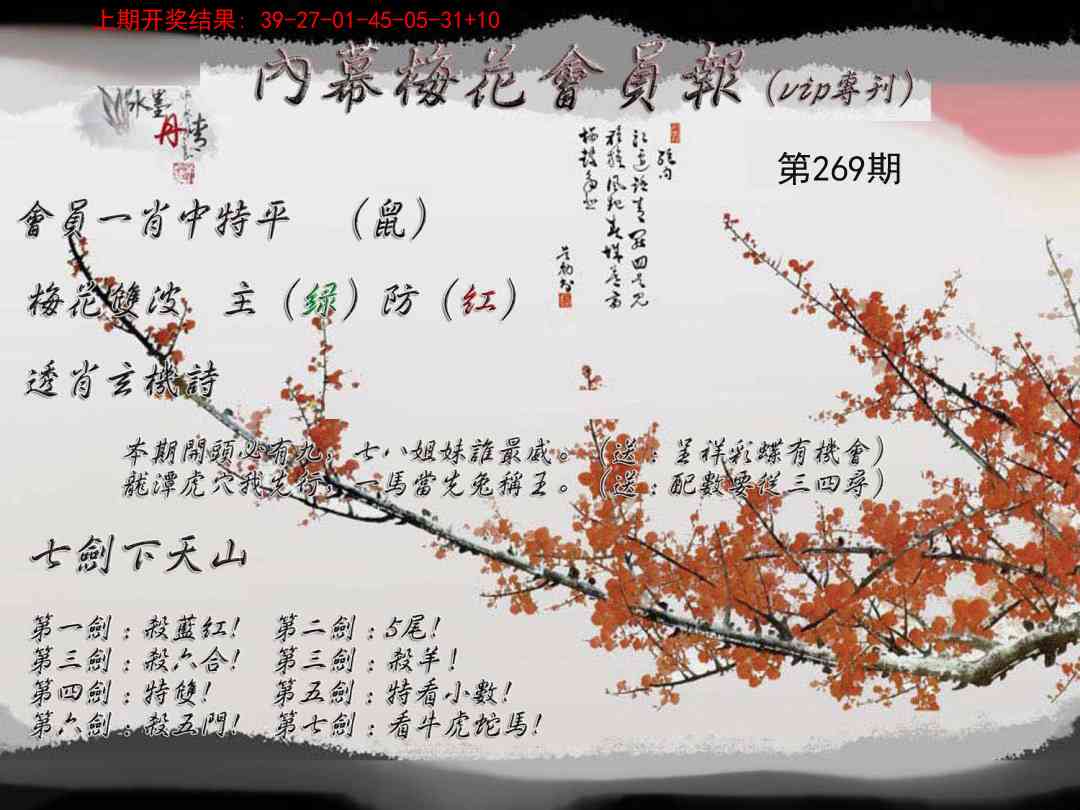 上期开奖结果: 39-27-01-45-05-31+10
內幕梅花會員報(vip專刊)
水墨
丹情
第269期
會員一肖中特平 (鼠)
梅花雙波 主(绿)防(红)
透肖玄機詩
本期開頭必有九，七八姐妹誰最威。(送:呈祥彩蝶有機會)
龍潭虎穴我先行，一馬當先兔稱王。(送:配數要從三四尋)
七劍下天山
第一劍:殺藍紅! 第二劍:5尾!
第三劍:殺六合! 第三劍:殺羊!
第四劍:特雙! 第五劍:特看小數!
第六劍:殺五門! 第七劍:看牛虎蛇馬!